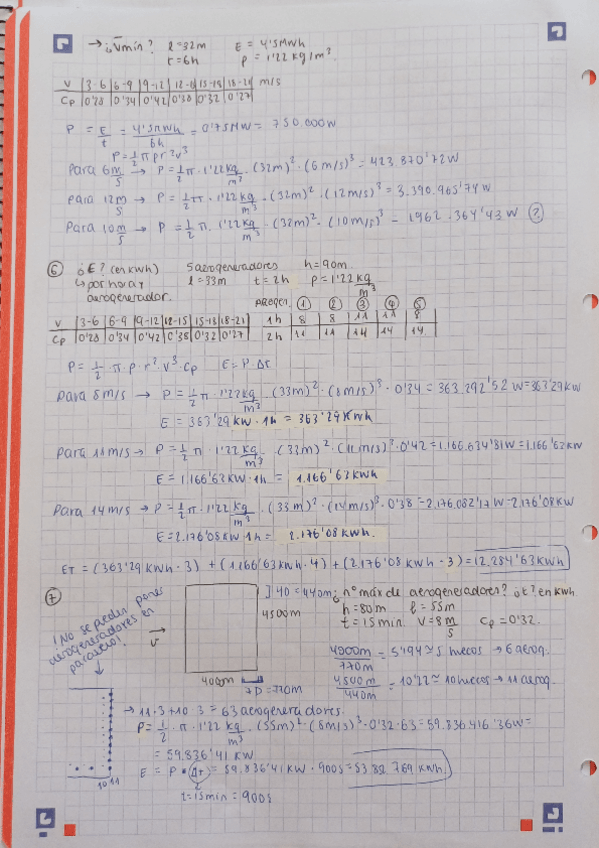 → ¿v min? l=32m E = 4'5MWh
t=6h ρ = 1'22 kg/m³
v | 3-6 | 6-9 | 9-12 | 12-15 | 15-18 | 18-21 m/s
Cp | 0'28 | 0'34 | 0'42 | 0'38 | 0'32 | 0'27
P = E/t = 4'5MWh/6h = 0'75MW = 750.000W
P = 1/2 π ρ r² v³
Para 6 m/s → P = 1/2 π · 1'22 kg/m³ · (32m)² · (6m/s)³ = 423.870'72W
Para 12 m/s → P = 1/2 π · 1'22 kg/m³ · (32m)² · (12m/s)³ = 3.390.965'74W
Para 10 m/s → P = 1/2 π · 1'22 kg/m³ · (32m)² · (10m/s)³ = 1962.364'43W (?)
⑥ ¿E? (en kWh) 5 aerogeneradores h=90m.
↳ por hora y aerogenerador. l=33m t=2h ρ=1'22 kg/m³
AEROGEN. ① ② ③ ④ ⑤
v | 3-6 | 6-9 | 9-12 | 12-15 | 15-18 | 18-21 1h | 8 | 8 | 11 | 11 | 8
Cp | 0'28 | 0'34 | 0'42 | 0'38 | 0'32 | 0'27 2h | 11 | 11 | 14 | 14 | 14
P = 1/2 · π · ρ · r² · v³ · Cp E = P · Δt
Para 8m/s → P = 1/2 π · 1'22 kg/m³ · (33m)² · (8m/s)³ · 0'34 = 363.292'52W = 363'29kW
E = 363'29 kW · 1h = 363'29 kWh
Para 11m/s → P = 1/2 π · 1'22 kg/m³ · (33m)² · (11m/s)³ · 0'42 = 1.166.634'31W = 1.166'63kW
E = 1.166'63kW · 1h = 1.166'63 kWh
Para 14m/s → P = 1/2 π · 1'22 kg/m³ · (33m)² · (14m/s)³ · 0'38 = 2.176.082'17W = 2.176'08kW
E = 2.176'08kW · 1h = 2.176'08 kWh.
ET = (363'29 kWh · 3) + (1.166'63kWh · 4) + (2.176'08 kWh · 3) = 12.284'63kWh
⑦ 4D = 440m ¿nº máx de aerogeneradores? ¿E? en kWh
¡No se pueden poner aerogeneradores en paralelo!
v
4500m
h = 80m l = 55m
t = 15min. v = 8 m/s Cp = 0'32.
4000m
7D = 770m
4000m/770m = 5'194 ≃ 5 huecos → 6 aerog.
4500m/440m = 10'22 ≃ 10 huecos → 11 aerog.
10 11
→ 11·3+10·3 = 63 aerogeneradores.
P = 1/2 · π · 1'22 kg/m³ · (55m)² · (8m/s)³ · 0'32 · 63 = 59.836.416'36W =
= 59.836'41 kW
E = P · Δt = 59.836'41 kW · 900s = 53.852.769 kWh.
t = 15min = 900s